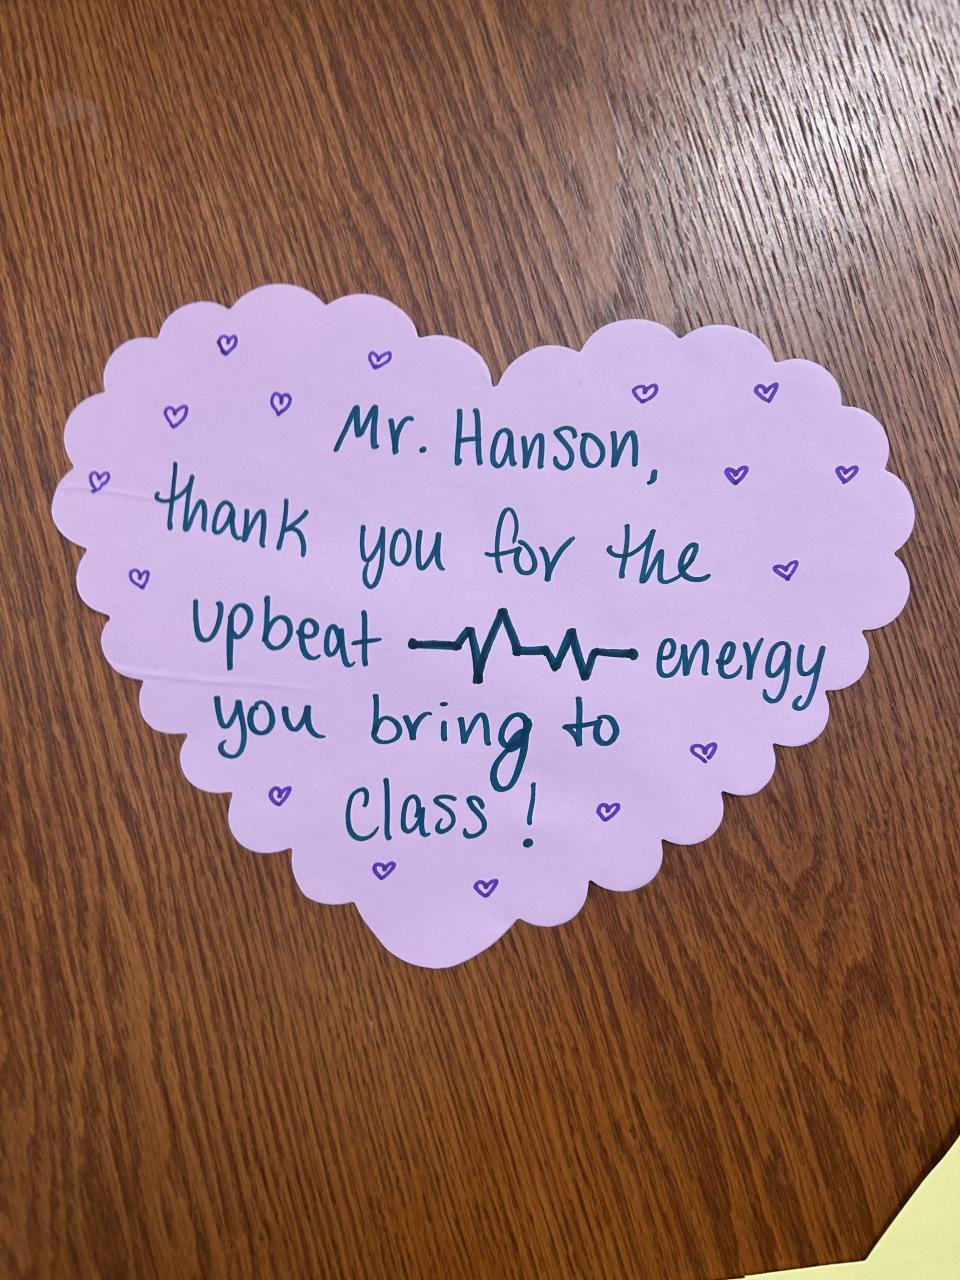 Mr. Hanson,
thank you for the
upbeat energy
you bring to
class!